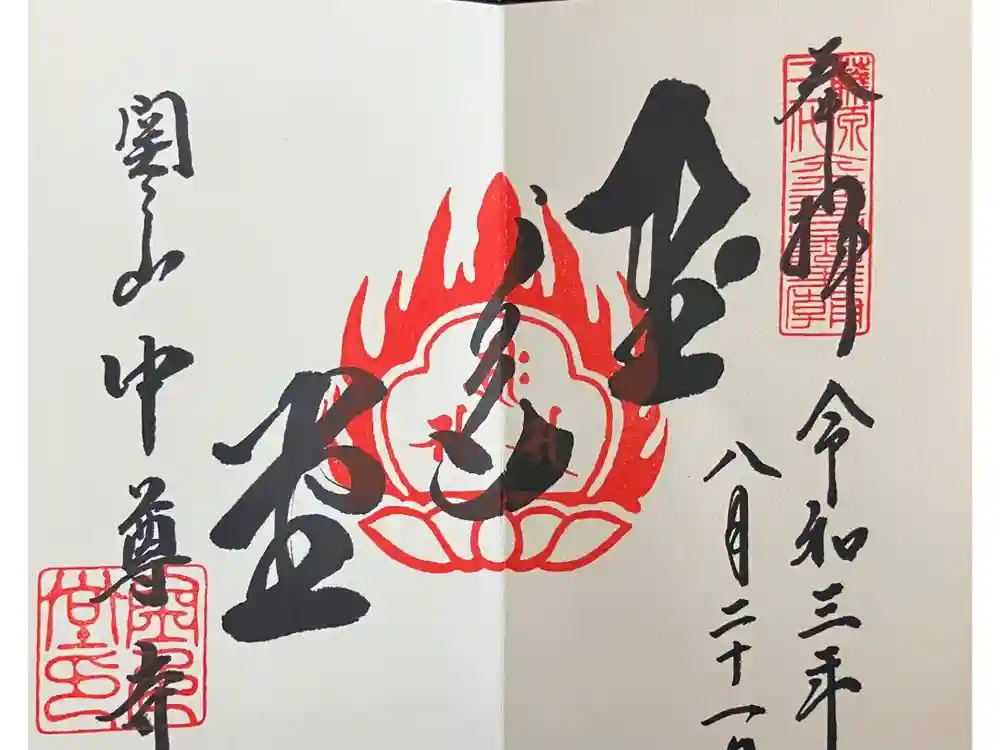 奉拝
令和三年
八月二十一日
金色堂
関山中尊寺